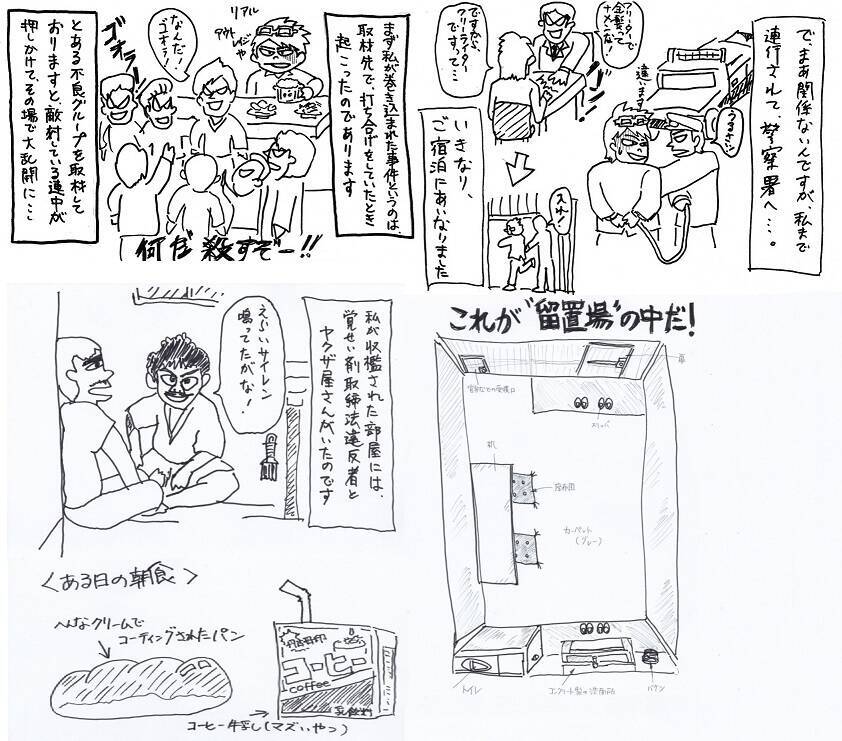 まず私が巻き込まれた事件というのは、
取材先で、打ち合せをしていたとき
起こったのであります
リアル
アウト
レイジや
なんだ!
ゴオラ!
ゴオラー!
何だ殺すぞー!!
とある不良グループを取材して
おりますと、敵対している連中が
押しかけて、その場で大乱闘に…
で、まあ関係ないんですが、私まで
連行されて、警察署へ…。
違います
うるさい!
金髪って
ナメんな!
ですから、
フリーライター
ですって…
いきなり、
ご宿泊にあいなりました
入れ!
私が収檻された部屋には、
覚せい剤取締法違反者と
ヤクザ屋さんがいたのです
えらいサイレン
鳴ってたがな!
<ある日の朝食>
へんなクリームで
コーティングされたパン
コーヒー
coffee
乳飲料
コーヒー牛乳(マズいやつ)
これが"留置場"の中だ!
扉
スリッパ
机
座布団
カーペット
(グレー)
トイレ
コンクリート製の洗面所